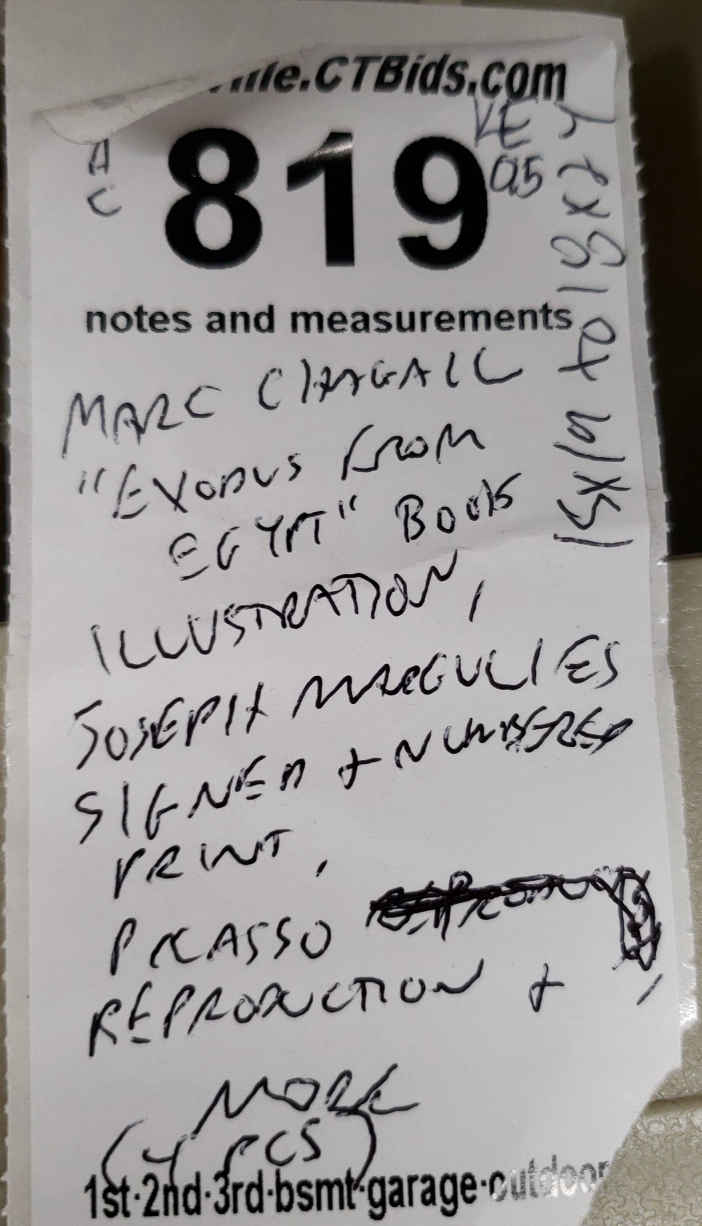 .CTBids.com
A
C
819
KE
05
notes and measurements
MARC CHAGALL
"EXODUS FROM
EGYPT" BOOK
ILLUSTRATION,
JOSEPH MARGULIES
SIGNED + NUMBERED
PRINT,
PICASSO
REPRODUCTION +
MORE
(4 PCS)
1st·2nd·3rd·bsmt·garage·outdoor
15x19 to 18x24